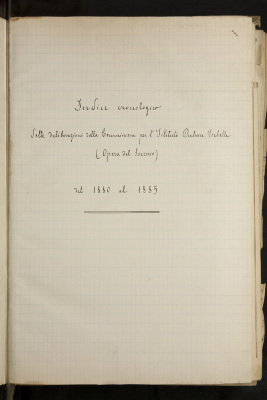 Indice cronologico
Delle deliberazioni della Commissione per l'Istituto
(Opera del Soccorso)
dal 1880 al 1885